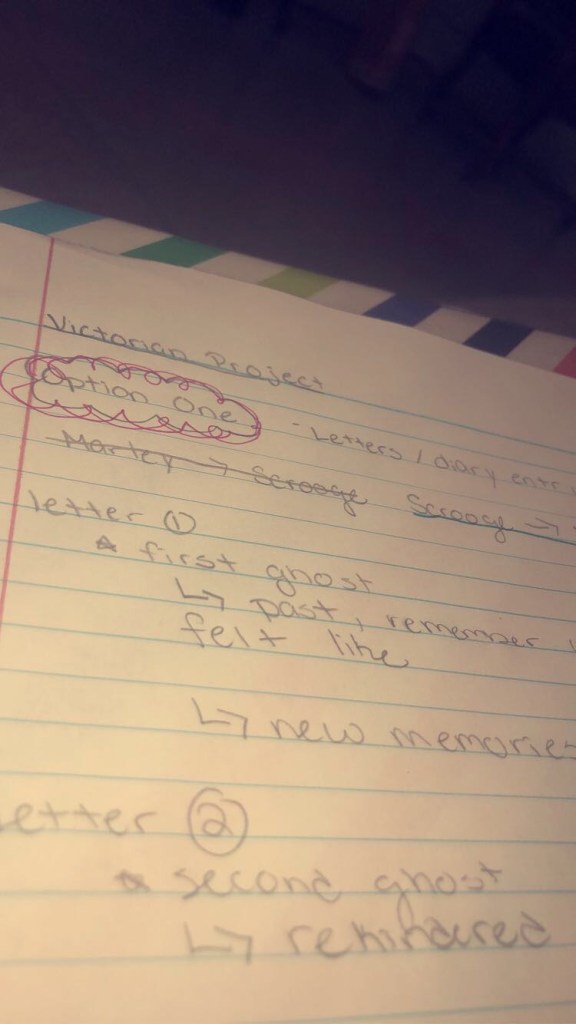 Victorian Project
Option One - Letters / diary entr
Marley → Scrooge Scrooge →
letter ①
☆ first ghost
↳ past, remember
felt like
↳ new memories
etter ②
☆ second ghost
↳ remindered